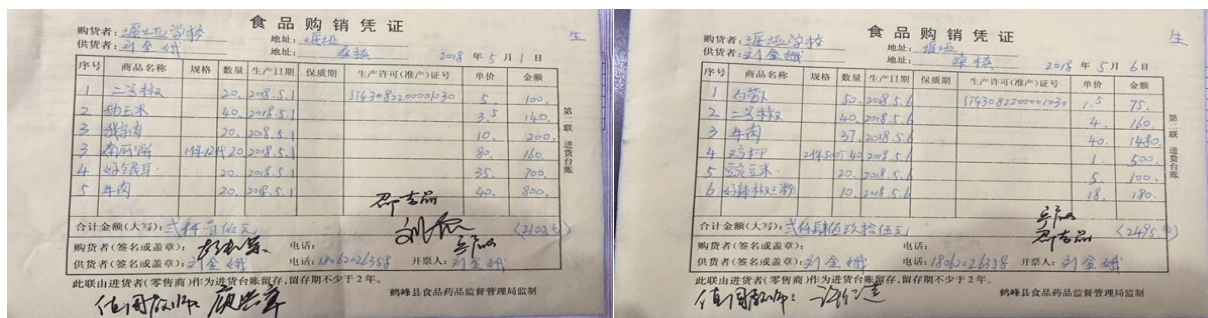 食品购销凭证
生
购货者：堰垭学校 地址：堰垭
供货者：刘金娥 地址：桑植 2018年5月1日
序号 商品名称 规格 数量 生产日期 保质期 生产许可(准产)证号 单价 金额
1 二号椒 20. 2018.5.1 SY43082200001030 5. 100.
2 甜玉米 40. 2018.5.1 3.5 140.
3 20. 2018.5.1 10. 200.
3 20 2018.5.1 80. 160.
4 20. 2018.5.1 35. 700.
5 牛肉 20. 2018.5.1 40. 800.
合计金额(大写)：贰仟壹佰元 (2100元)
购货者(签名或盖章)： 电话：
供货者(签名或盖章)：刘金娥 电话：18062026358 开票人：刘金娥
此联由进货者(零售商)作为进货台账留存,留存期不少于2年。
鹤峰县食品药品监督管理局监制
第二联 进货台账
值周教师：
食品购销凭证
生
购货者：堰垭学校 地址：堰垭
供货者：刘金娥 地址：桑植 2018年5月6日
序号 商品名称 规格 数量 生产日期 保质期 生产许可(准产)证号 单价 金额
1 白萝卜 50. 2018.5.6 SY43082200001030 1.5 75.
2 二号椒 40. 2018.5.6 4. 160.
3 牛肉 37. 2018.5.6 40. 1480.
4 40 2018.5.6 1. 500.
5 豌豆米 20. 2018.5.6 5. 100.
6 10. 2018.5.6 18. 180.
合计金额(大写)：贰仟肆佰玖拾伍元 (2495元)
购货者(签名或盖章)： 电话：
供货者(签名或盖章)：刘金娥 电话：18062026358 开票人：刘金娥
此联由进货者(零售商)作为进货台账留存,留存期不少于2年。
鹤峰县食品药品监督管理局监制
第二联 进货台账
值周教师：